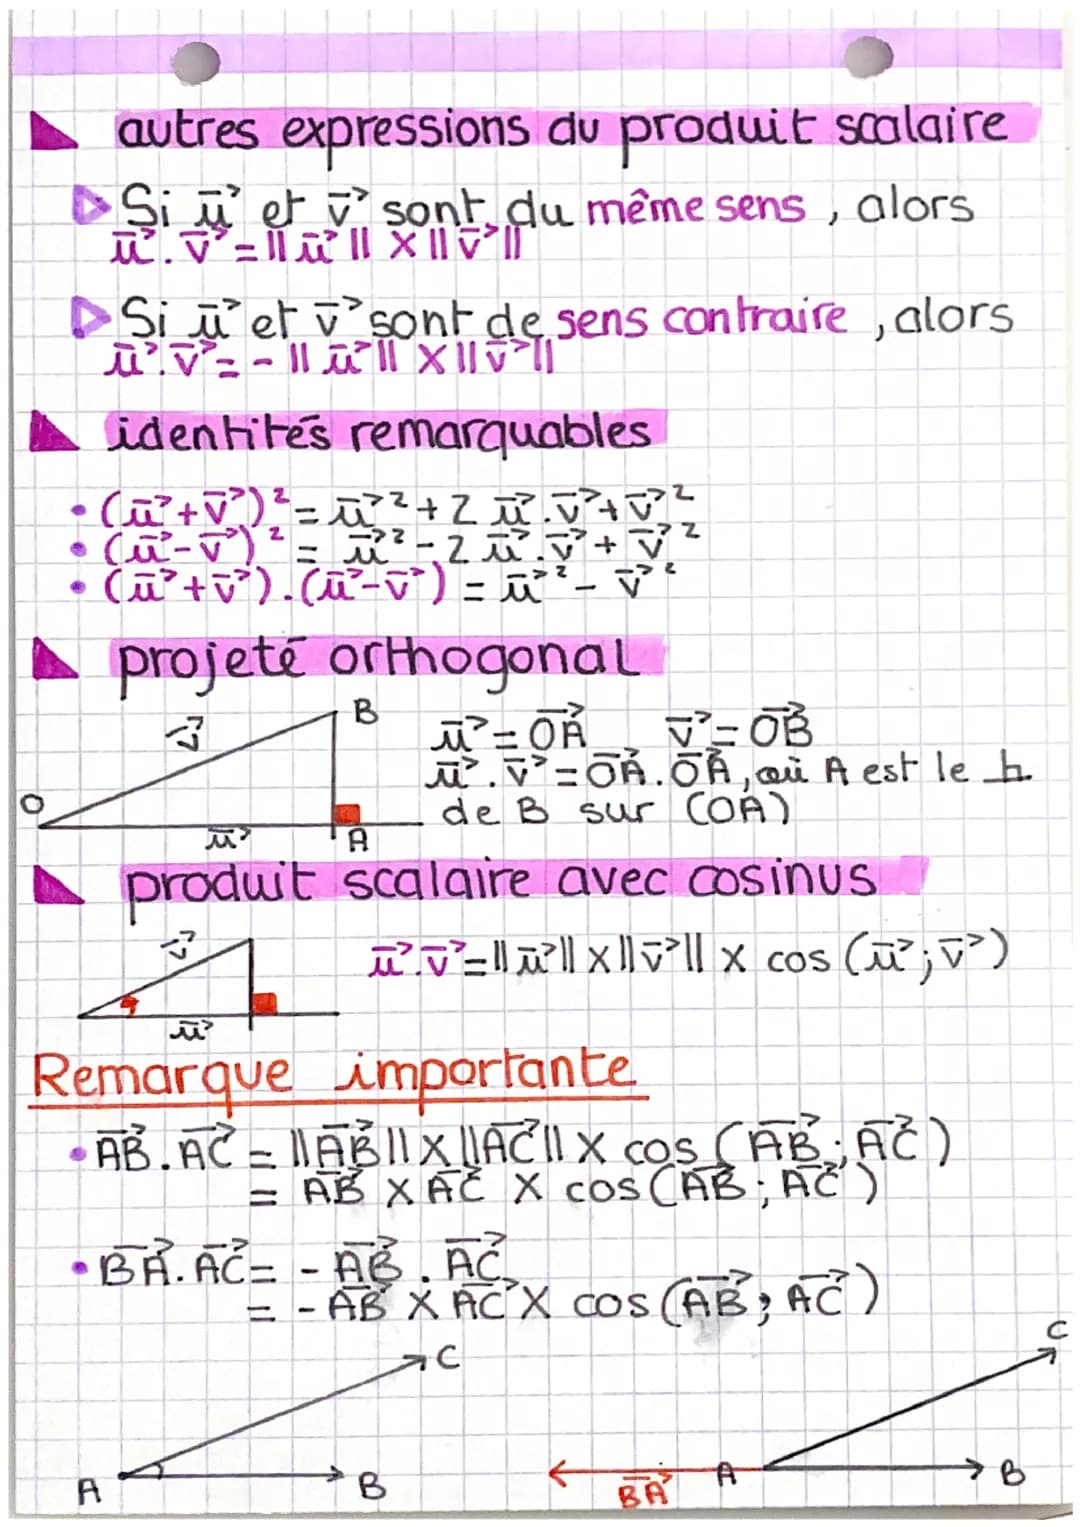 autres expressions du produit scalaire
Si u⃗ et v⃗ sont du même sens, alors
u⃗.v⃗ = ||u⃗|| × ||v⃗||
Si u⃗ et v⃗ sont de sens contraire, alors
u⃗.v⃗ = - ||u⃗|| × ||v⃗||
identités remarquables
• (u⃗+v⃗)² = u⃗² + 2 u⃗.v⃗ + v⃗²
• (u⃗-v⃗)² = u⃗² - 2 u⃗.v⃗ + v⃗²
• (u⃗+v⃗).(u⃗-v⃗) = u⃗² - v⃗²
projeté orthogonal
B
v⃗
u⃗ = OA⃗ v⃗ = OB⃗
u⃗.v⃗ = OA⃗.OA⃗, où A est le h
O
de B sur (OA)
u⃗
A
produit scalaire avec cosinus
v⃗
u⃗.v⃗ = ||u⃗|| × ||v⃗|| × cos (u⃗;v⃗)
u⃗
Remarque importante
• AB⃗.AC⃗ = ||AB⃗|| × ||AC⃗|| × cos (AB⃗;AC⃗)
= AB⃗ × AC⃗ × cos (AB⃗;AC⃗)
• BA⃗.AC⃗ = - AB⃗.AC⃗
= - AB⃗ × AC⃗ × cos (AB⃗;AC⃗)
C
C
A
B
BA⃗
A
B